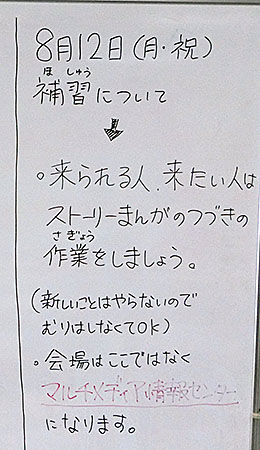 8月12日(月・祝)
ほ しゅう
補習について
↓
。来られる人、来たい人は
ストーリーまんがのつづきの
さぎょう
作業をしましょう。
(新しいことはやらないので
むりはしなくてOK)
。会場はここではなく
マルチメディア情報センター
になります。